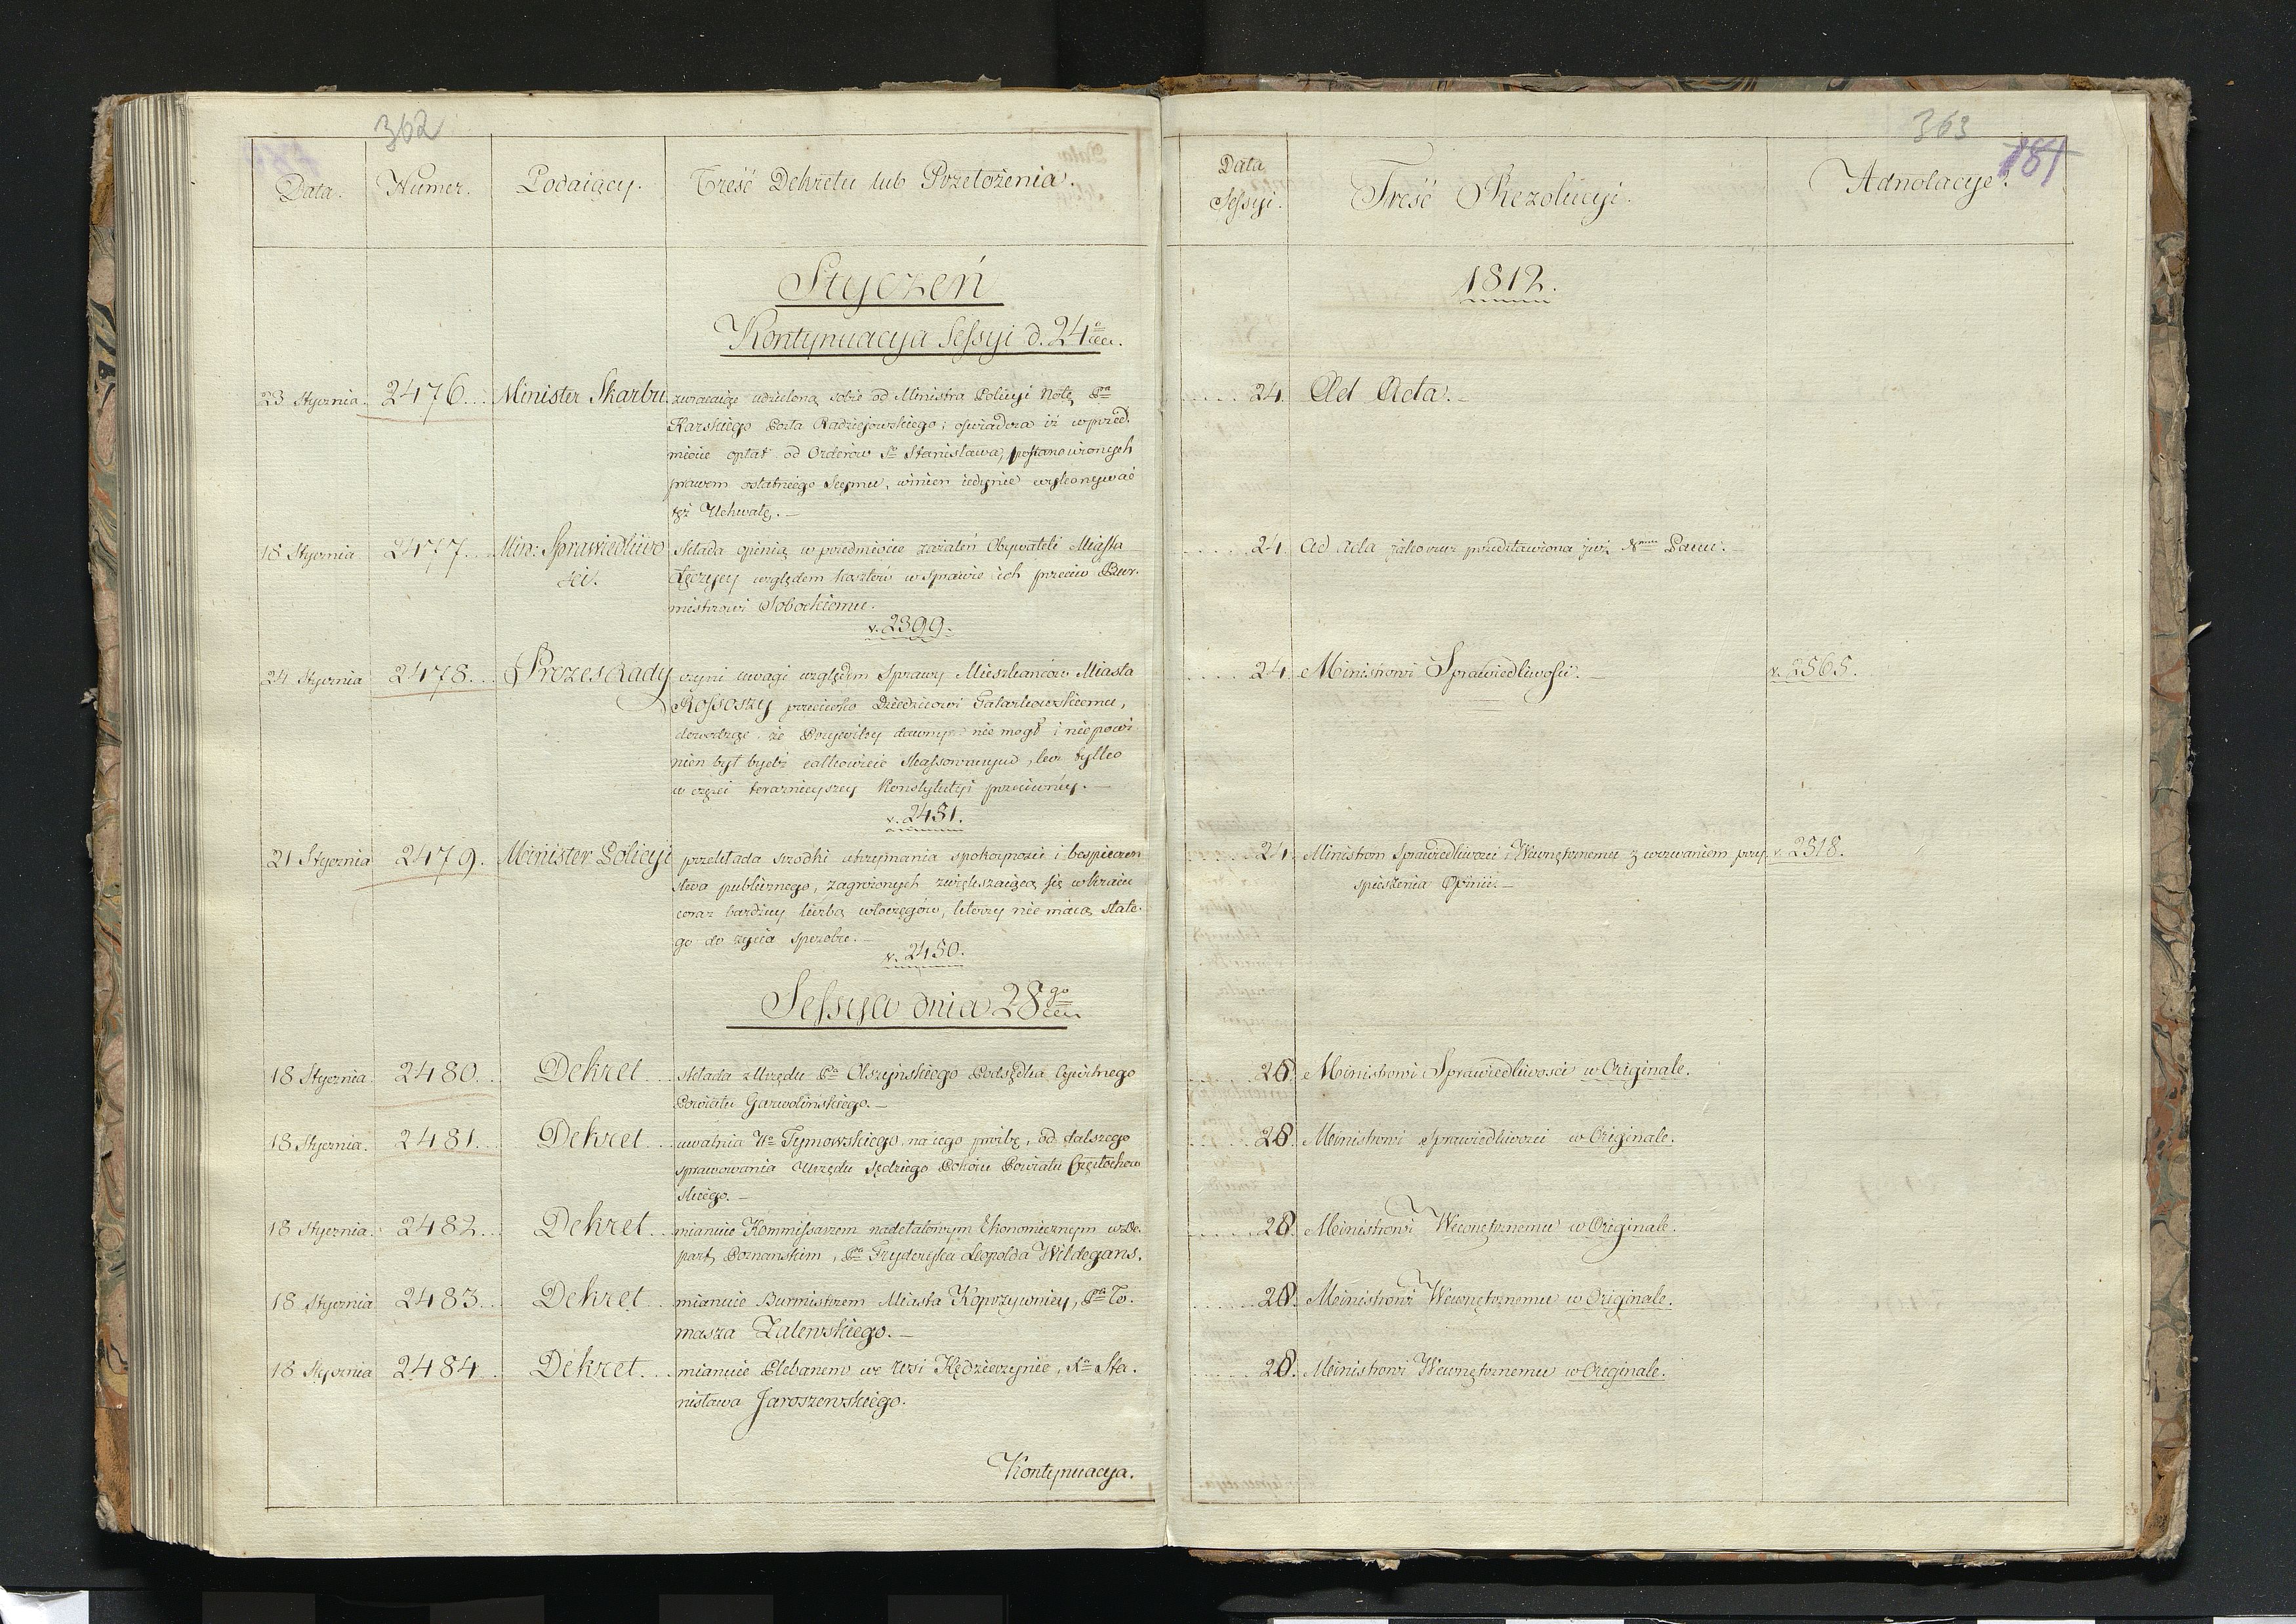 362
Data. Numer. Podaiący. Treść Dekretu lub Przełożenia.
Styczeń
Kontynuacyja Sessyi d. 24
23 Stycznia. 2476... Minister Skarbu zwracaiąc udzieloną sobie od Ministra Policyi Notę Pna
Karskiego Posła Radziejowskiego; oświadcza iż w przed
miocie opłat od Orderów Sgo Stanisława, postanowionych
prawem ostatniego Seymu, winien iedynie wykonywać
też Uchwałę. —
18 Stycznia 2477... Min: Sprawiedliwo składa opinią w przedmiocie zażaleń Obywateli Miasta
ści. Łęczycy względem kosztów w Sprawie ich przeciw Bur.
mistrzowi Sobockiemu.
v. 2399.
24 Stycznia 2478... Prezes Rady czyni uwagi względem Sprawy Mieszkańców Miasta
Rossoszy przeciwko Dziedzicowi
dowodząc że Przywiley dawny nie mogł i niepowi
nien był bydź całkowicie Skassowanym, lecz tylko
w częsci teraznieyszey Konstytutyi przeciwney. —
v. 2451.
21 Stycznia 2479. Minister Policyi przekłada srodki utrzymania spokoyności i bespieczeń
stwa publicznego, zagrożonych zwiększaiącą się w kraiu
coraz bardziey liczbą włoczęgów, ktorzy nie maią stałe.
go do życia sposobu. —
v. 2450.
Sessya dnia 28go
18 Stycznia 2480... Dekret... składa z Urzędu Pna Olszyńskiego Podsędka Cywilnego
Powiatu Garwolinskiego. —
18 Stycznia. 2481... Dekret... uwalnia Wo Tymowskiego, na iego proźbę, od dalszego
sprawowania Urzędu Sędziego Pokoiu Powiatu Częstochow
skiego. —
18 Stycznia. 2482... Dekret... mianuie Kommissarzem nadetatowym Ekonomicznym w De.
part. Poznanskim, Pna Fryderyka Leopolda Wildegans.
18 Stycznia 2483... Dekret... mianuie Burmistrzem Miasta Koprzywnicy, Pna To.
masza Zalewskiego. —
18 Stycznia 2484... Dekret... mianuie Plebanem we Wsi Kędzierzynie, Xa Sta.
nisława Jaroszewskiego.
Kontynuacya.
363
181
Data Sessyi. Treść Rezolucyi. Adnotacye.
1812.
.... 24. Ad Acta. —
.... 24. Ad Acta jako rzecz przedstawiona już Nmu Panu. —
.... 24. Ministrowi Sprawiedliwości. — v. 2565.
.... 24. Ministrom Sprawiedliwości i Wewnętrznemu z wezwaniem przy v. 2518.
spieszenia Opinii. —
.... 28. Ministrowi Sprawiedliwości w Originale.
.... 28. Ministrowi Sprawiedliwości w Originale.
.... 28. Ministrowi Wewnętrznemu w Originale.
.... 28. Ministrowi Wewnętrznemu w Originale.
.... 28. Ministrowi Wewnętrznemu w Originale.